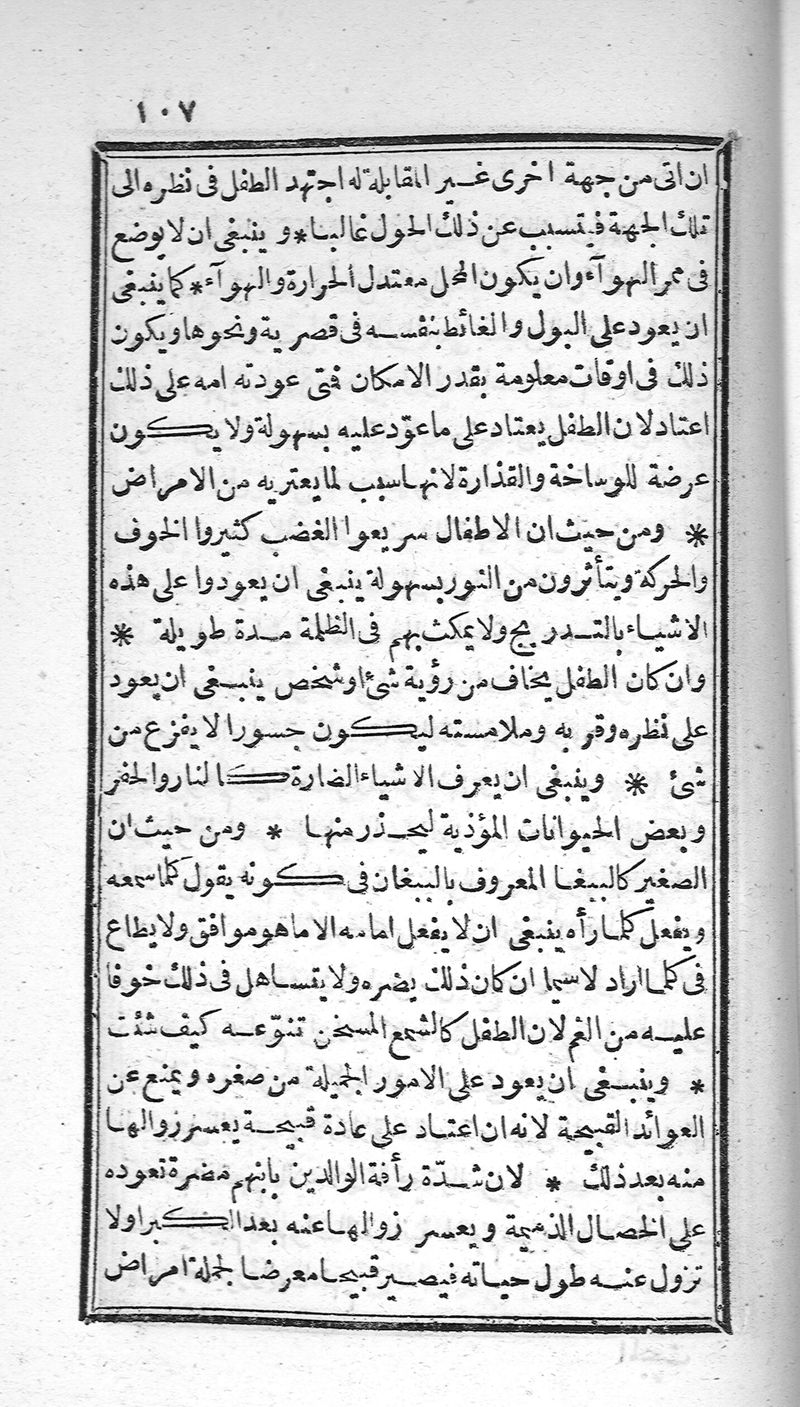 ١٠٧
ان اتى من جهة اخرى غير المقابلة له اجتهد الطفل فى نظره الى
تلك الجهة فيتسبب عن ذلك الحول غالبا * و ينبغى ان لا يوضع
فى ممر الهوآء وان يكون المحل معتدل الحرارة والهوآء * كما ينبغى
ان يعود على البول والغائط بنفسه فى قصرية ونحوها ويكون
ذلك فى اوقات معلومة بقدر الامكان فتى عودته امه على ذلك
اعتاد لان الطفل يعتاد على ماعوّد عليه بسهولة ولا يكون
عرضة للوساخة والقذارة لانها سبب لما يعتريه من الامراض
* ومن حيث ان الاطفال سريعوا الغضب كثيروا الخوف
والحركة ويتأثرون من النور بسهولة ينبغى ان يعودوا على هذه
الاشياء بالتدريج ولا يمكث بهم فى الظلمة مدة طويلة *
وان كان الطفل يخاف من رؤية شئ او شخص ينبغى ان يعود
على نظره وقربه وملامسته ليكون جسورا لا يفزع من
شئ * وينبغى ان يعرف الاشياء الضارة كالنار والحفر
وبعض الحيوانات المؤذية ليحذر منها * ومن حيث ان
الصغير كالببغا المعروف بالببغان فى كونه يقول كلما سمعه
ويفعل كلما رأه ينبغى ان لا يفعل امامه الا ما هو موافق ولا يطاع
فى كلما اراد لاسيما ان كان ذلك يضره ولا يتساهل فى ذلك خوفا
عليه من الغم لان الطفل كالشمع المسخن تنوّعه كيف شئت
* وينبغى ان يعود على الامور الجميلة من صغره ويمنع عن
العوائد القبيحة لانه ان اعتاد على عادة قبيحة يعسر زوالها
منه بعد ذلك * لان شدّة رأفة الوالدين بابنهم مضرة تعوده
على الخصال الذميمة ويعسر زوالها عنه بعد الكبر اولا
تزول عنه طول حياته فيصير قبيحا معرضا لجملة امراض